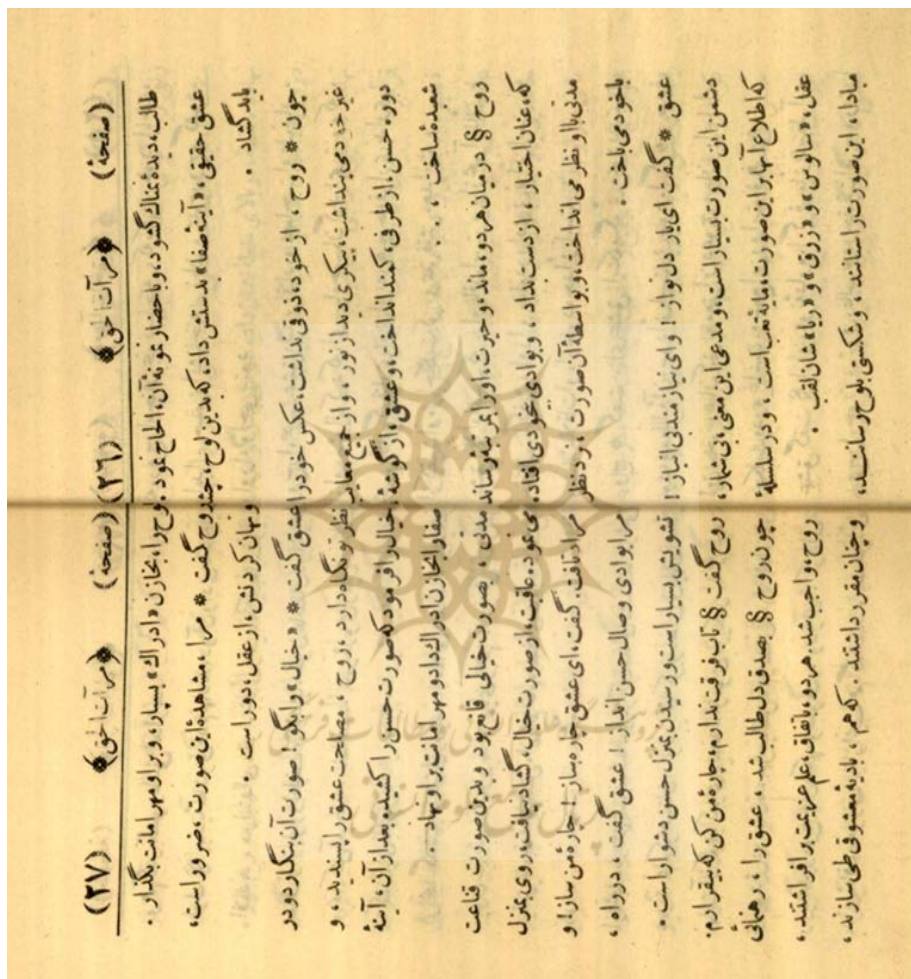 (صفحهٔ) ﴿مرآت الحق﴾ (٢٦)
طالب، دیدهٔ نمناک گشود، و باحضار نمونهٔ آن، الحاح نمود.
عشق حقیقی، «آینهٔ صفا» بدستش داد، که بدین لوح، چند
باید گشاد .
چون * روح ، از خود، ذوقی نداشت، عکس خود را
غیر خود می پنداشت، پیکری دید از نور ، و از جمیع معایب
دور، حسن، از طرفی، کمند انداخت، و عشق، از گوشهٔ،
شعبده ساخت .
روح § در میان هردو، ماند، و حیرت، اورا بمرتبهٔ رساند
که، عنان اختیار ، از دست بداد ، و بوادی بیخودی افتاد،
مدتی با او نظر می انداخت، و بواسطهٔ آن صورت ، نرد نظر
باخود می باخت .
عشق * گفت ای یار دل نواز ! و ای نیاز مند بی انباز !
دشمن این صورت بسیار است، و مدعی این معنی، بی شمار،
که اطلاع آنها بر این صورت، مایهٔ تعب است ، و در سلسلهٔ
عقل، «سالوس» و «زرق» و «ریاء» شان لقب .
مبادا، این صورت را ستانند ، و شکستی بلوح رسانند،
(صفحهٔ) ﴿مرآت الحق﴾ (٢٧)
لوح را، بخازن «ادراک» بسپار، و بر او مهر امانت بگذار.
روح گفت * مرا ، مشاهدهٔ این صورت ، ضرور است،
و نهان کردنش، از عقل، دور است .
عشق گفت * «خیال» را بگو ! صورت آن بنگارد و در
نظر تو نگاه دارد ، روح ، مصلحت عشق را پسندید، و
خیال را فرمود که صورت حسن را کشید، بعد از آن، آینهٔ
صفا را بخازن ادراک داد و مهر امانت بر او نهاد .
مدتی ، بصورت خیالی قانع بود و بدین صورت قناعت
می نمود، عاقبت، از صورت خیال، گشاد نیافت، روی بمنزل
مراد تافت. گفت، ای عشق چاره ساز ! چارهٔ من ساز ! و
مرا بوادی وصال حسن انداز ! عشق گفت ، در راه ،
تشویش بسیار است و رسیدن بمنزل حسن دشوار است .
روح گفت § تاب فرقت ندارم، چارهٔ من کن که بیقرارم.
چون روح § بصدق دل طالب شد ، عشق را ، رهنمائی
روح، واجب شد. هردو، باتفاق، علم عزیمت بر افراشتند،
و چنان مقرر داشتند. که هم ، بادیهٔ معشوقی طی سازند ،
پژوهشگاه علوم انسانی و مطالعات فرهنگی
پرتال جامع علوم انسانی